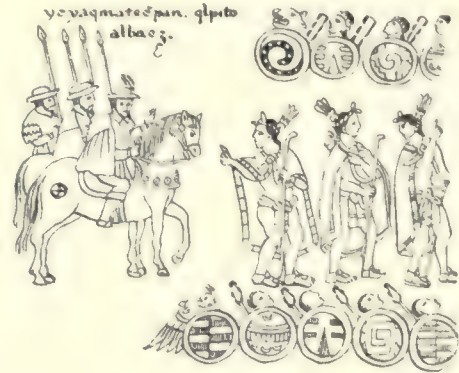 yc yaqmatecpan. qlpito
albaez.